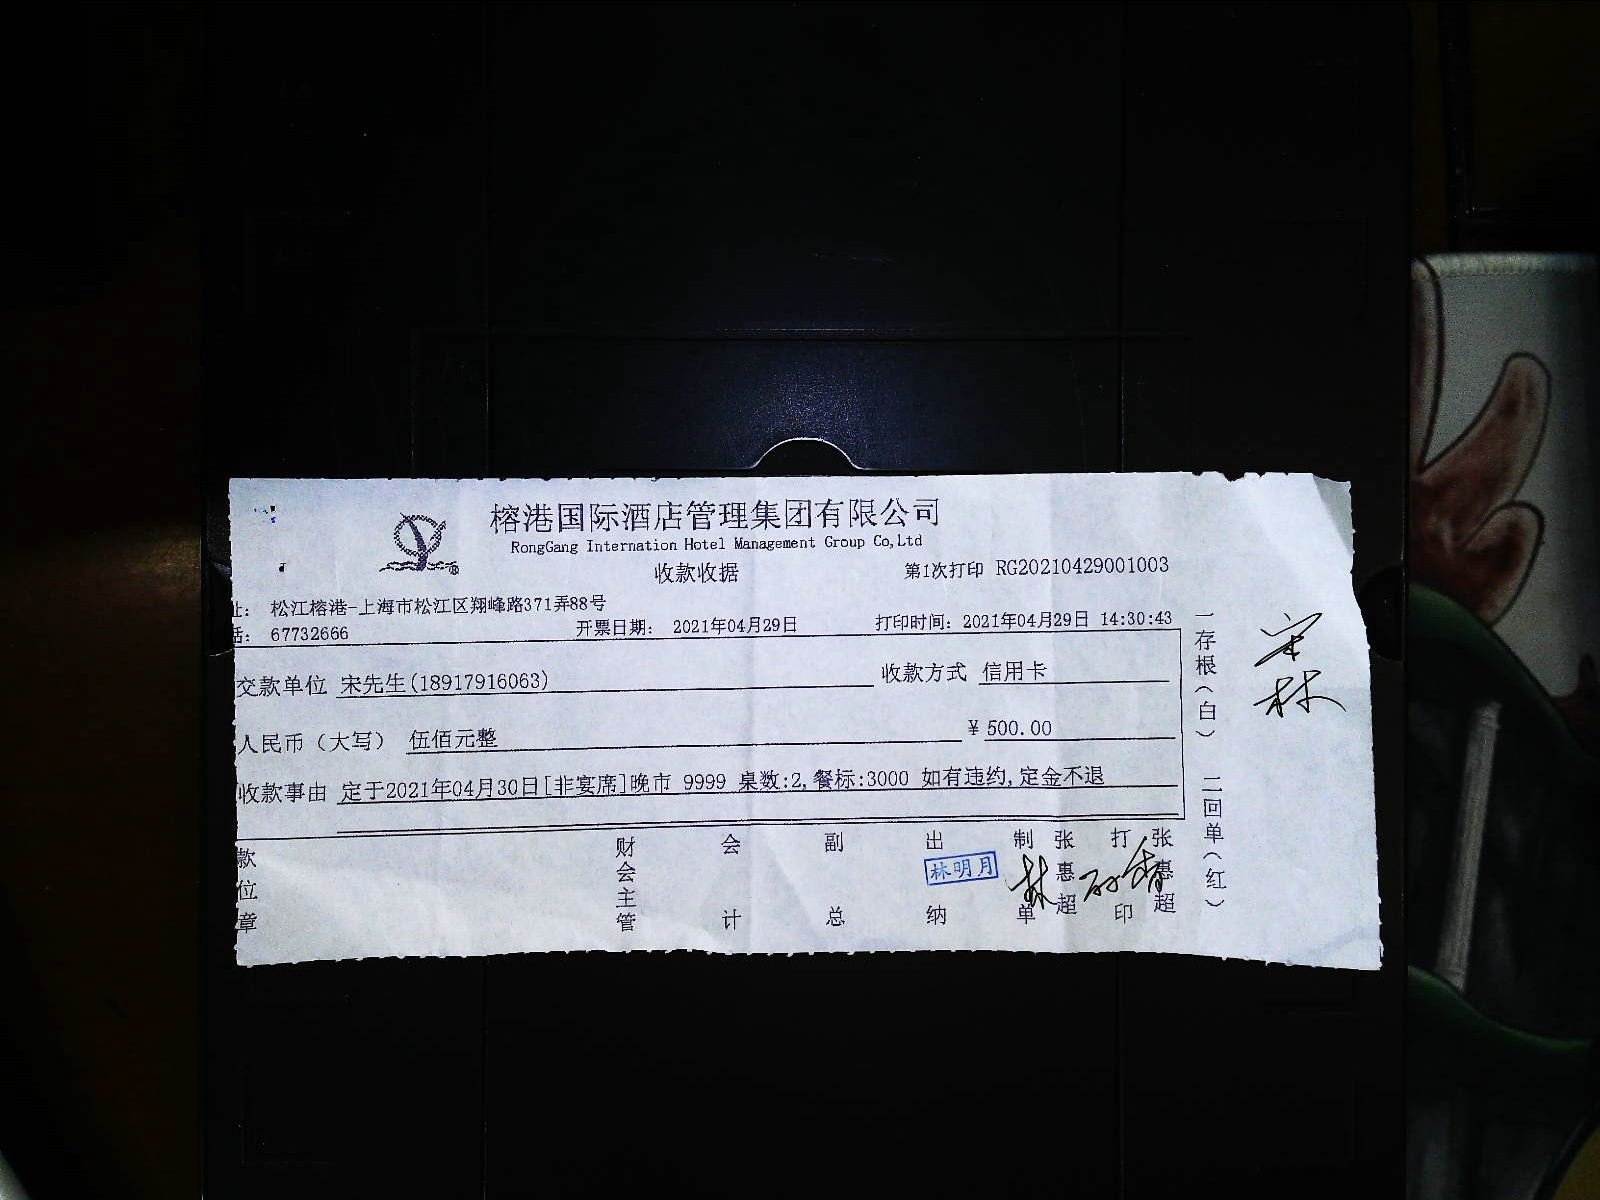 榕港国际酒店管理集团有限公司
RongGang Internation Hotel Management Group Co,Ltd
收款收据
第1次打印 RG20210429001003
址: 松江榕港-上海市松江区翔峰路371弄88号
话: 67732666 开票日期: 2021年04月29日 打印时间: 2021年04月29日 14:30:43
交款单位 宋先生(18917916063) 收款方式 信用卡
人民币（大写） 伍佰元整 ￥500.00
收款事由 定于2021年04月30日[非宴席]晚市 9999 桌数:2,餐标:3000 如有违约,定金不退
款位章
财会主管
会计
副总
出纳
林明月
制单
张惠超
打印
张惠超
一存根（白） 二回单（红）
林